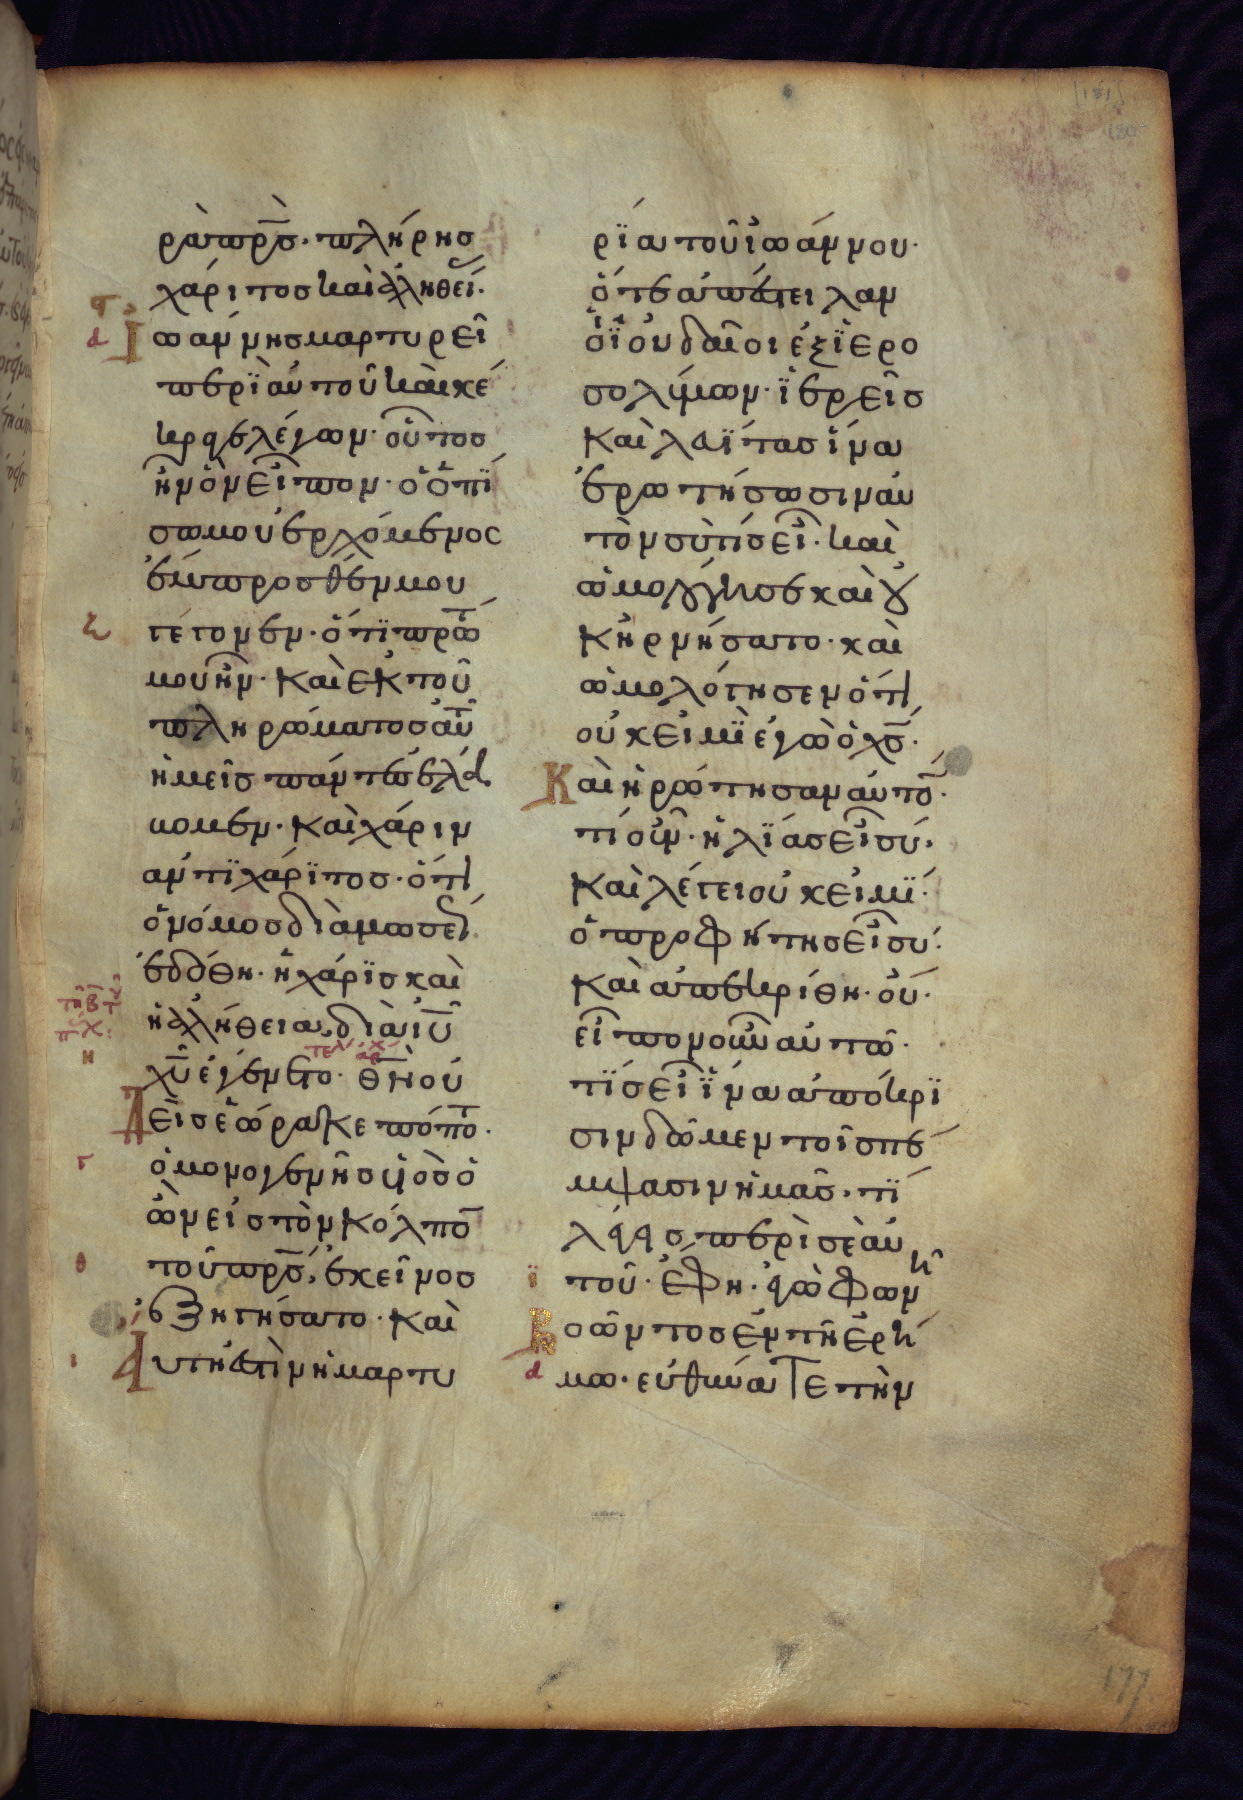 ρὰ πρ̅σ̅· πλήρησ
χάριτοσ καὶ ἀληθεί·
Ἰωάννησ μαρτυρεῖ
περῒ αὐτοῦ καὶ κέ
κραγε λέγων· οὗτοσ
ἦν ὃν εἶπον· ὁ ὀπί
σω μου ἐρχόμενος
ἔμπροσθέν μου
γέγονεν· ὅτι πρῶτ
μου ἦν· καὶ ἐκ τοῦ
πληρώματοσ αὐτ
ἡμεῖσ πάντεσ ἐλά
βομεν· καὶ χάριν
ἀντὶ χάριτοσ· ὅτι
ὁ νόμοσ διὰ μωσέ
ἐδόθη· ἡ χάρισ καὶ
ἡ ἀλήθεια διὰ ἰ̅υ̅
χ̅υ̅ ἐγένετο· θ̅ν̅ οὐ
Δεὶσ ἑώρακε πόποτ·
ὁ μονογενὴσ υἱὸσ ὁ
ὢν εἰσ τὸν κόλπο
τοῦ πρ̅σ̅, ἐκεῖνοσ
ἐξηγήσατο· καὶ
Αὕτη ἐστὶν ἡ μαρτυ
ρία τοῦ ἰωάννου·
ὅτε ἀπέστειλαν
οἱ ἰουδαῖοι ἐξ ἱερο
σολύμων· ἱερεῖσ
καὶ λευίτασ ἵνα
ἐρωτήσωσιν αὐ
τὸν σὺ τίσ εἶ· καὶ
ὡμολόγησε καὶ οὐ
κ ἠρνήσατο· καὶ
ὡμολόγησεν ὅτι
οὐκ εἰμὶ ἐγὼ ὁ χ̅σ̅·
Καὶ ἠρώτησαν αὐτό·
τί οὖν· ἠλίασ εἶ σύ·
καὶ λέγει οὐκ εἰμί·
ὁ προφήτησ εἶ σύ·
καὶ ἀπεκρίθη· οὔ·
εἶπον οὖν αὐτῶ·
τίσ εἶ ἵνα ἀπόκρι
σιν δῶμεν τοῖσ πέ
μψασιν ἡμᾶσ· τί
λέγεισ περὶ σεαυ
τοῦ· ἔφη· ἐγὼ φωνὴ
Βοῶντοσ ἐν τῆ ἐρή
μω· εὐθύνατε τὴν
177